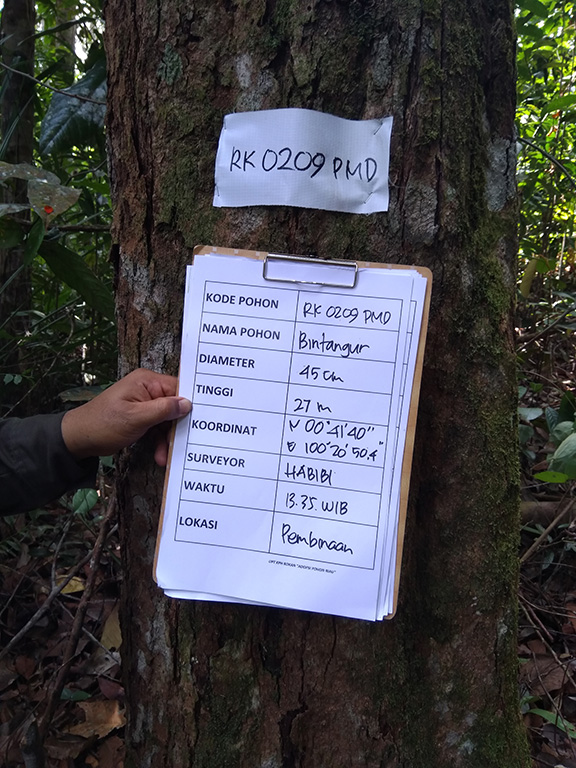 RK 0209 PMD
KODE POHON RK 0209 PMD
NAMA POHON Bintangur
DIAMETER 45 cm
TINGGI 27 m
KOORDINAT N 00°41'40"
E 100°20'50.4"
SURVEYOR HABIBI
WAKTU 13.35. WIB
LOKASI Pembinaan
UPT KPH ROKAN "ADOPSI POHON RIAU"